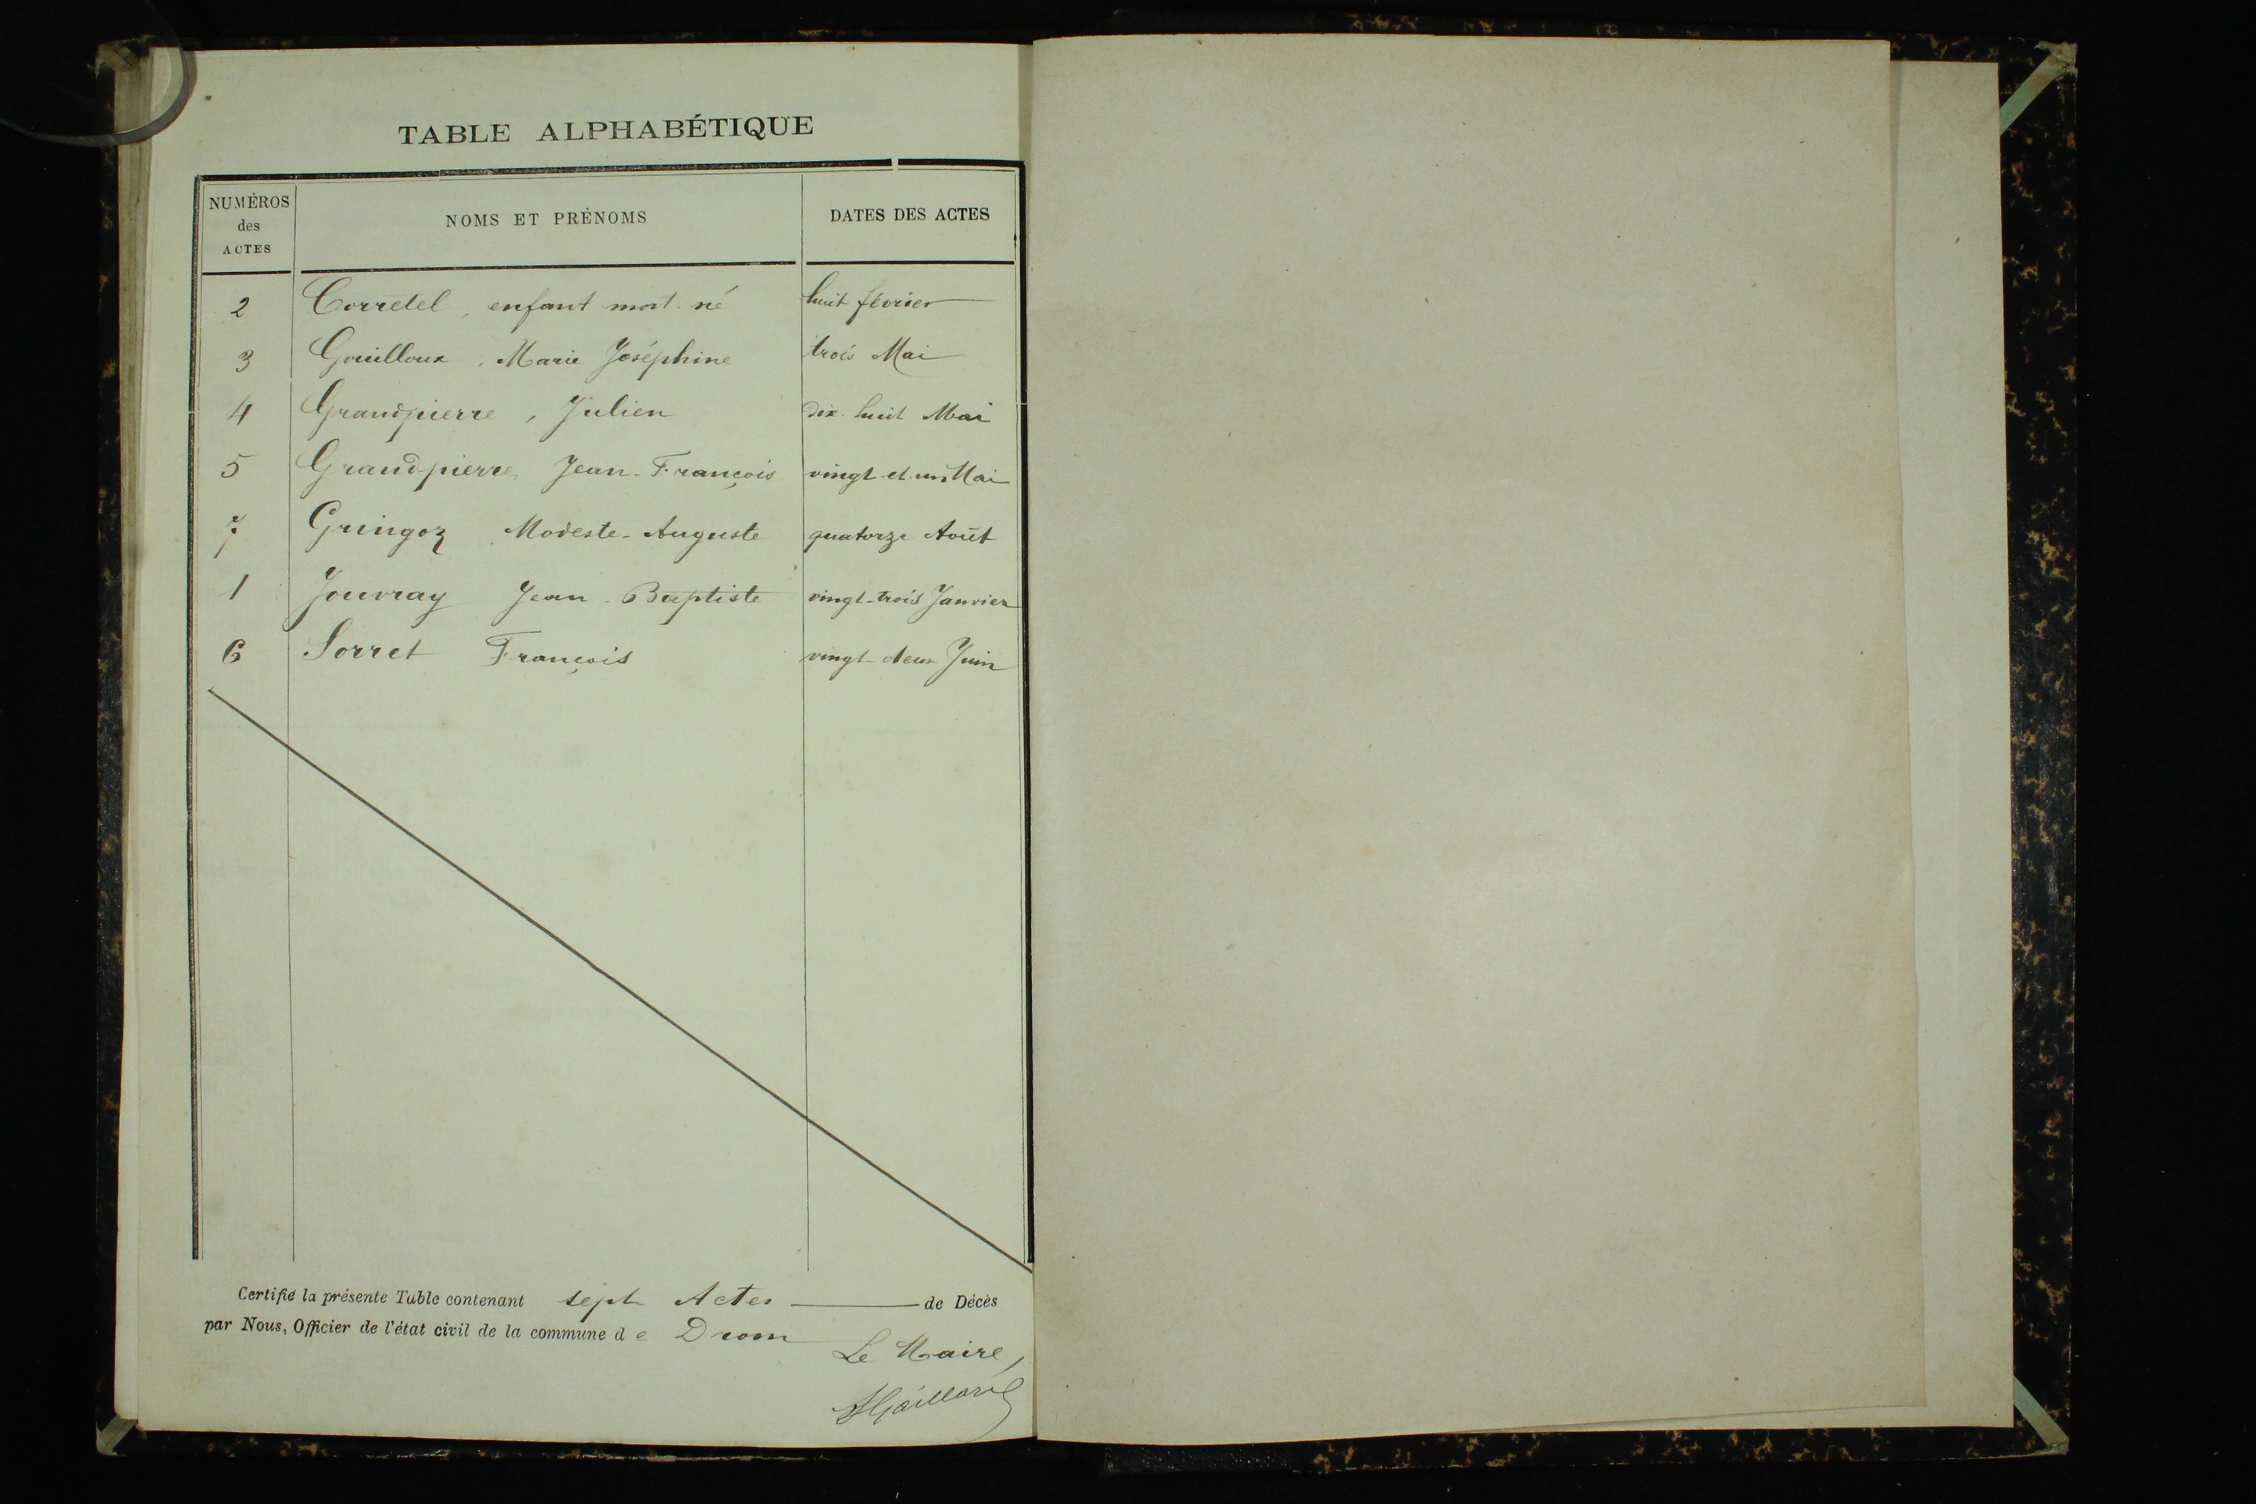 TABLE ALPHABÉTIQUE
NUMÉROS
des
ACTES
NOMS ET PRÉNOMS
DATES DES ACTES
2 Corretel, enfant mort-né huit février
3 Gouilloux, Marie Joséphine trois Mai
4 Grandpierre, Julien dix-huit Mai
5 Grand-pierre, Jean-François vingt-et-un Mai
7 Gringoz Modeste-Auguste quatorze Août
1 Jouvray Jean-Baptiste vingt-trois Janvier
6 Sorret François vingt-deux Juin
Certifié la présente Table contenant sept Actes de Décès
par Nous, Officier de l'état civil de la commune de Drom
Le Maire,
Gaillard